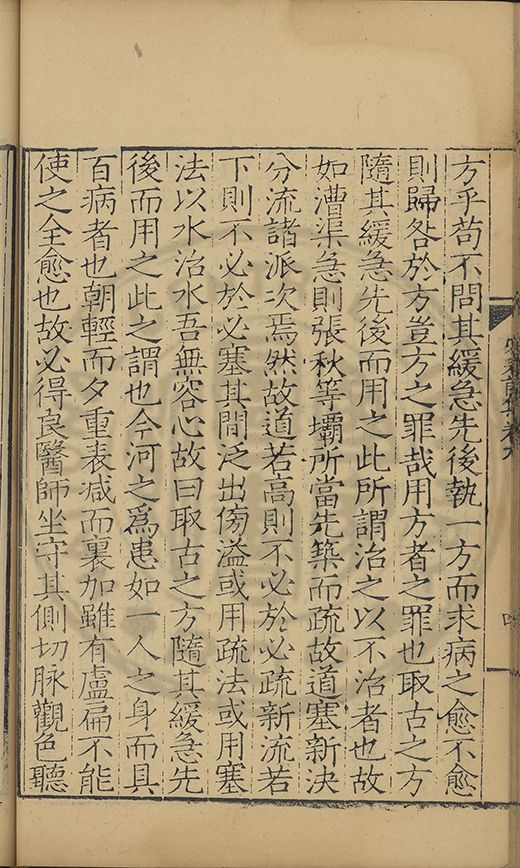 方乎苟不問其緩急先後執一方而求病之愈不愈
則歸咎於方豈方之罪哉用方者之罪也取古之方
隨其緩急先後而用之此所謂治之以不治者也故
如漕渠急則張秋等壩所當先築而疏故道塞新決
分流諸派次焉然故道若高則不必於必疏新流若
下則不必於必塞其間泛出傍溢或用疏法或用塞
法以水治水吾無容心故曰取古之方隨其緩急先
後而用之此之謂也今河之爲患如一人之身而具
百病者也朝輕而夕重表减而裏加雖有盧扁不能
使之全愈也故必得良醫師坐守其側切脉觀色聽